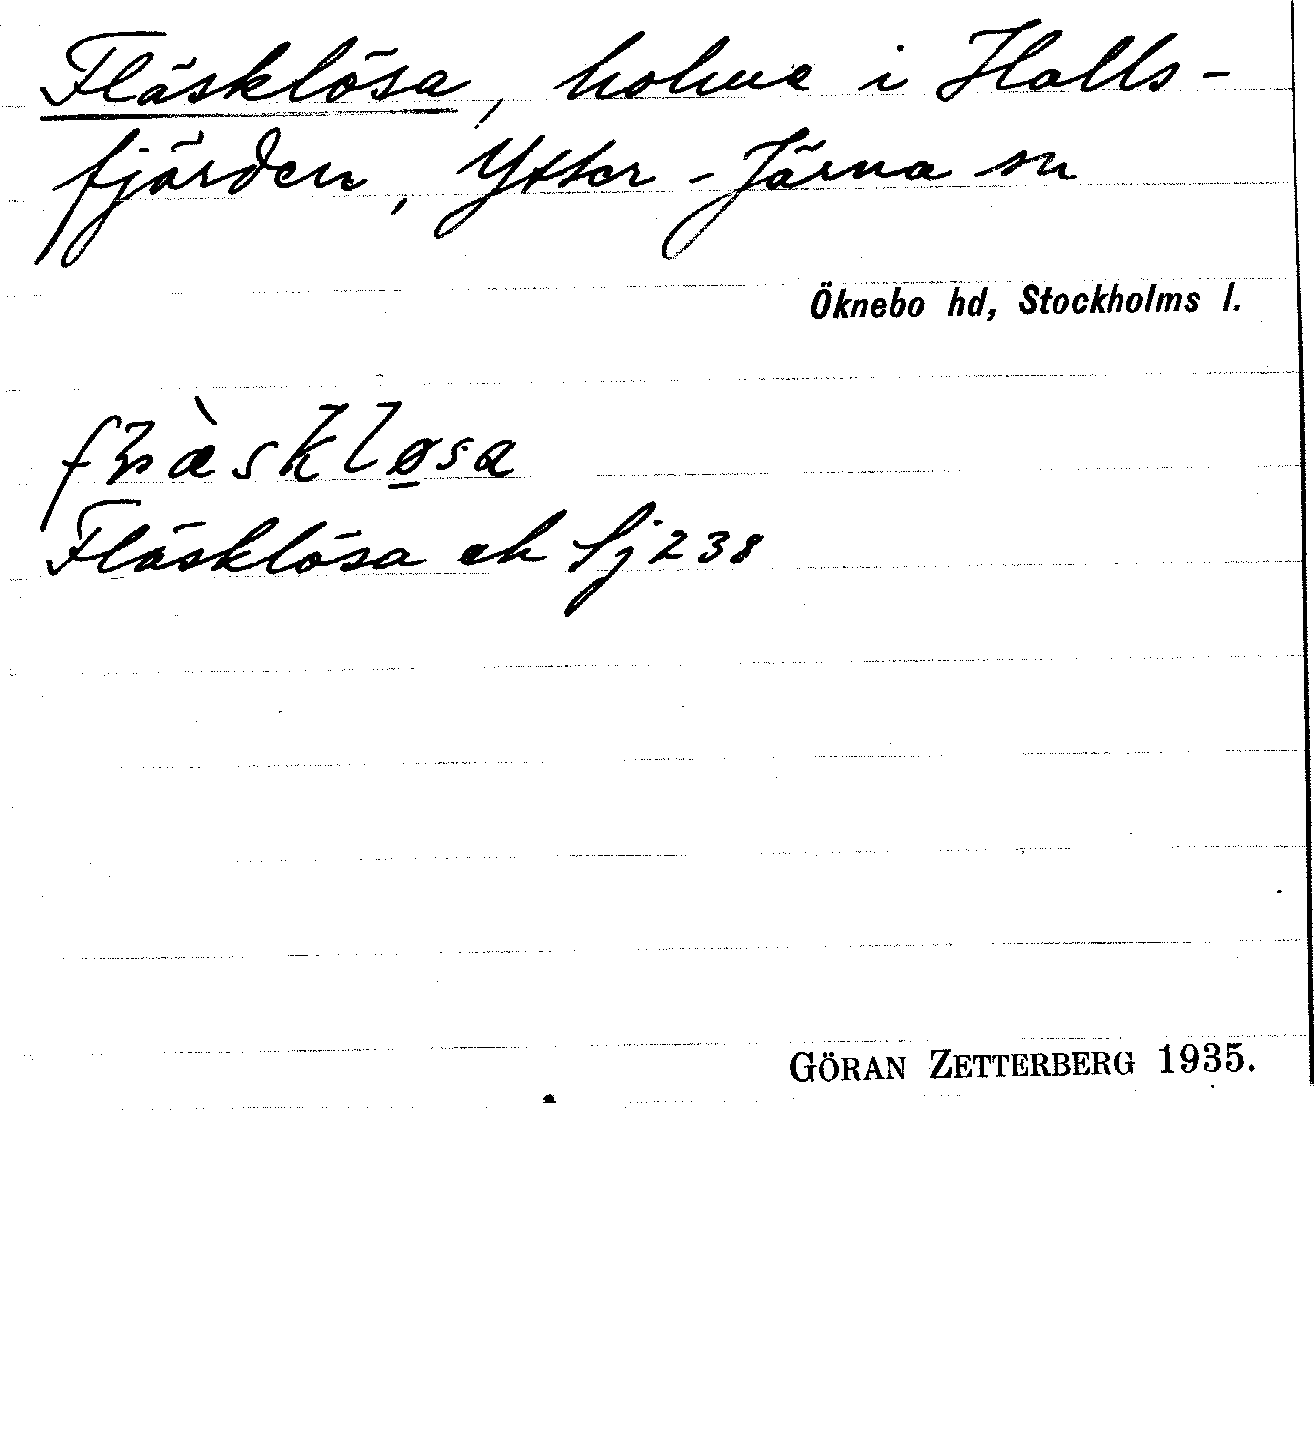 Fläsklösa, holme i Halls-
fjärden, Ytter-Järna sn
Öknebo hd, Stockholms l.
Fläsklösa ek Sj 238
GÖRAN ZETTERBERG 1935.